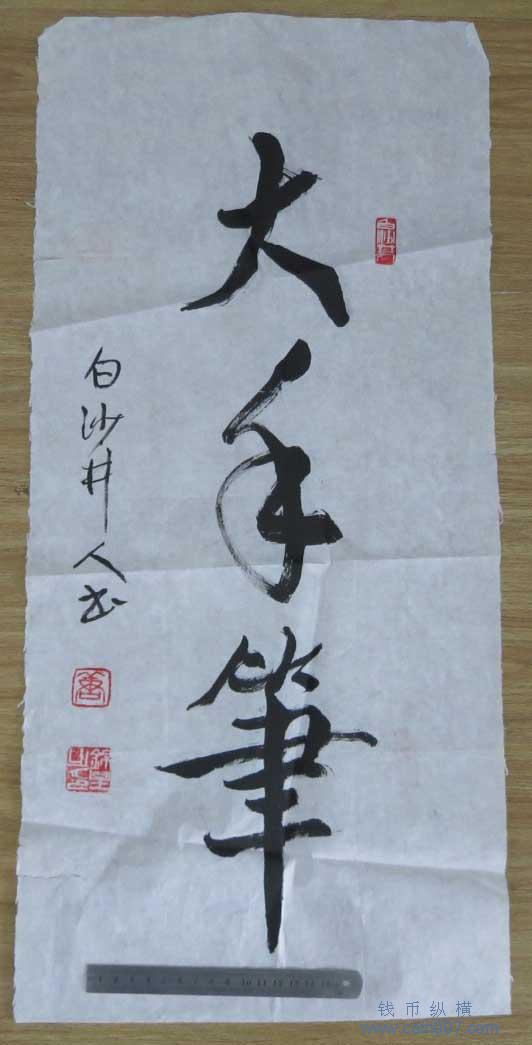 大手筆
白沙井人书
钱币纵横
www.coin007.com